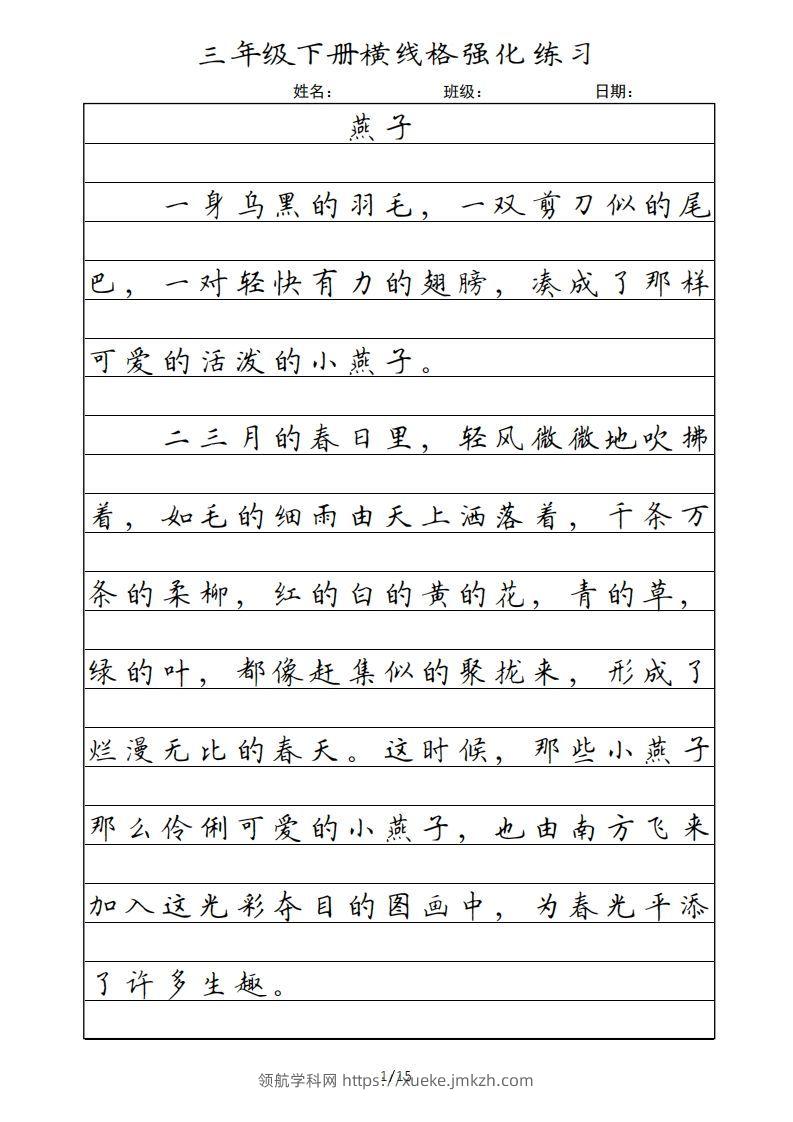 三年级下册横线格强化练习
姓名： 班级： 日期：
燕子
一身乌黑的羽毛，一双剪刀似的尾
巴，一对轻快有力的翅膀，凑成了那样
可爱的活泼的小燕子。
二三月的春日里，轻风微微地吹拂
着，如毛的细雨由天上洒落着，千条万
条的柔柳，红的白的黄的花，青的草，
绿的叶，都像赶集似的聚拢来，形成了
烂漫无比的春天。这时候，那些小燕子
那么伶俐可爱的小燕子，也由南方飞来
加入这光彩夺目的图画中，为春光平添
了许多生趣。
1/15
领航学科网 https://xueke.jmkzh.com